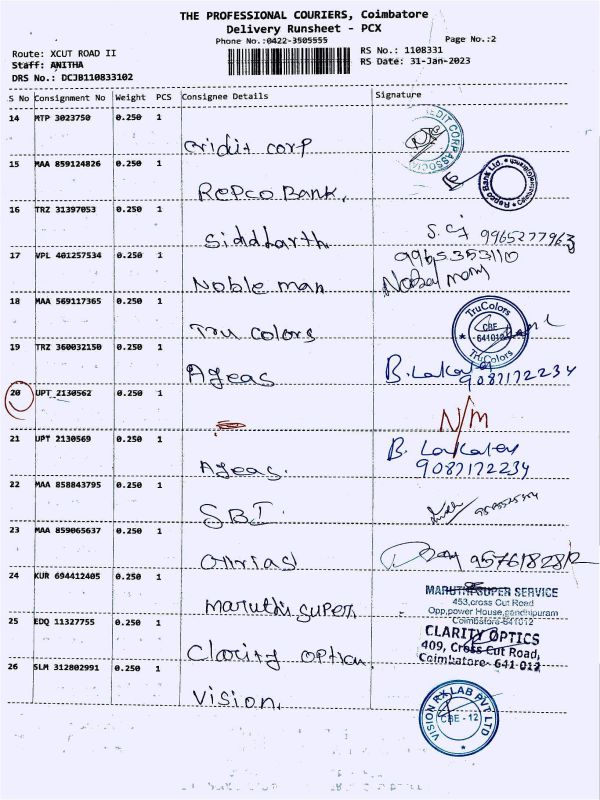 THE PROFESSIONAL COURIERS, Coimbatore
Delivery Runsheet - PCX
Phone No.:0422-3505555
Page No.:2
Route: XCUT ROAD II
RS No.: 1108331
Staff: ANITHA
RS Date: 31-Jan-2023
DRS No.: DCJB110833102
S No Consignment No Weight PCS Consignee Details Signature
14 MTP 3023750 0.250 1
Cridit corp
15 MAA 859124826 0.250 1
Repco Bank.
Repco Bank Ltd.
16 TRZ 31397053 0.250 1
Siddharth
9965277963
17 VPL 401257534 0.250 1
9965353110
Noble man
18 MAA 569117365 0.250 1
Tru colors
TruColors
CBE
641012
TruColors
19 TRZ 360032150 0.250 1
Ageas
9087172234
20 UPT 2130562 0.250 1
N/M
21 UPT 2130569 0.250 1
Ageas.
9087172234
22 MAA 858843795 0.250 1
SBI
23 MAA 859065637 0.250 1
24 KUR 694412405 0.250 1
Maruthi super
MARUTHI SUPER SERVICE
453,cross Cut Road
Opp,power House,gandhipuram
Coimbatore-641012
25 EDQ 11327755 0.250 1
Clarity option.
CLARITY OPTICS
409, Cross Cut Road,
Coimbatore- 641 012
26 SLM 312802991 0.250 1
Vision.
VISION RX LAB PVT LTD
CBE - 12